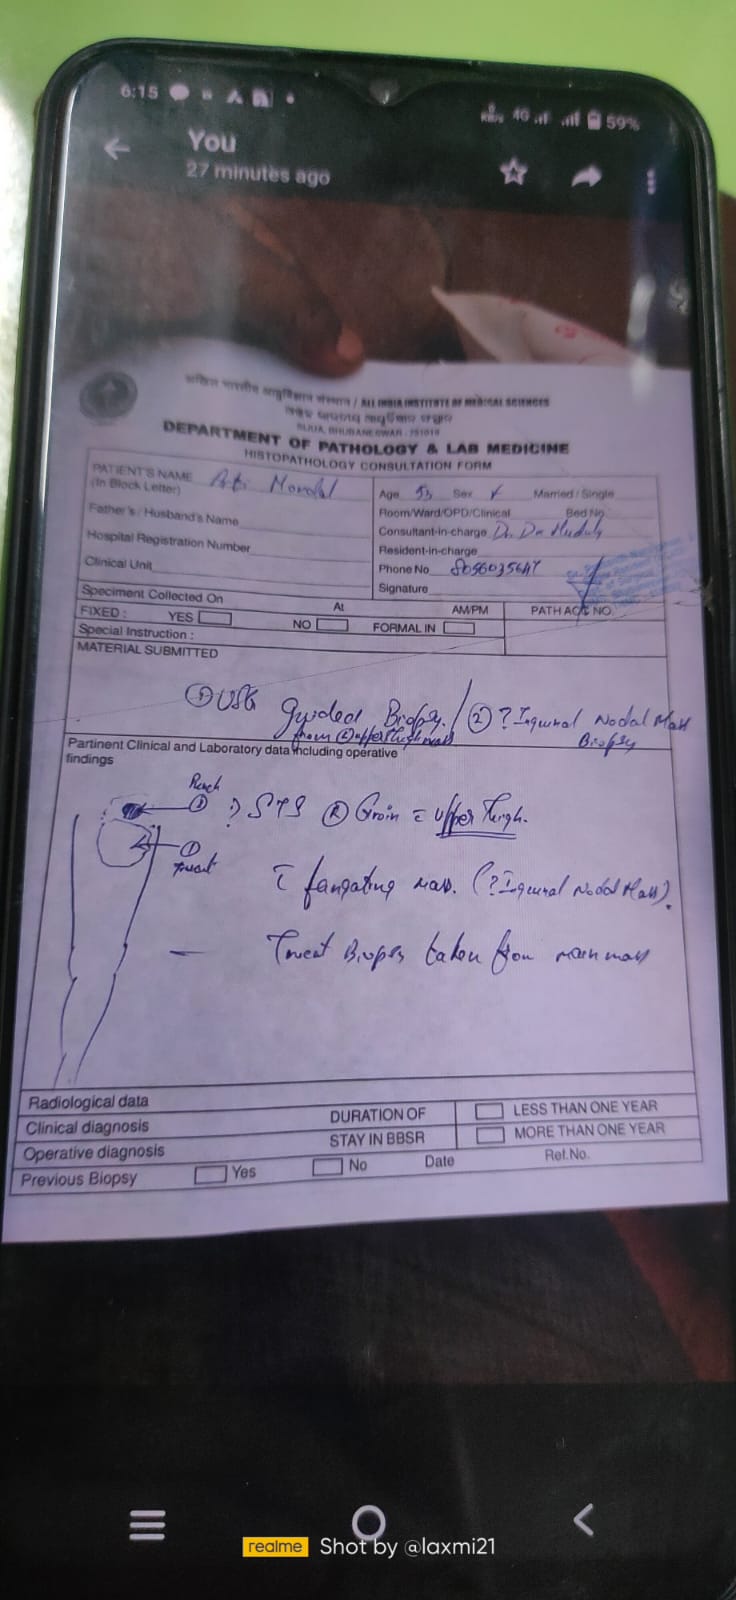 6:15
4G 59%
You
27 minutes ago
अखिल भारतीय आयुर्विज्ञान संस्थान / ALL INDIA INSTITUTE OF MEDICAL SCIENCES
SIJUA, BHUBANESWAR - 751019
DEPARTMENT OF PATHOLOGY & LAB MEDICINE
HISTOPATHOLOGY CONSULTATION FORM
PATIENT'S NAME
(In Block Letter) Mondal
Father's / Husband's Name
Hospital Registration Number
Clinical Unit
Age 53 Sex Married / Single
Room/Ward/OPD/Clinical Bed No
Consultant-in-charge Dr.
Resident-in-charge
Phone No 8056035647
Signature
Speciment Collected On At AM/PM
FIXED : YES NO FORMAL IN
PATH ACC NO.
Special Instruction :
MATERIAL SUBMITTED
① USG guided Biopsy. / ② ? Inguinal Nodal Mass
from upper thigh mass Biopsy
Partinent Clinical and Laboratory data including operative
findings
Punch
② ? STS Ⓡ Groin c Upper Thigh.
①
Trucut
c fungating mass. (? Inguinal Nodal Mass).
— Trucut Biopsy taken from main mass
Radiological data
Clinical diagnosis
Operative diagnosis
Previous Biopsy Yes No Date Ref.No.
DURATION OF
STAY IN BBSR
LESS THAN ONE YEAR
MORE THAN ONE YEAR
realme Shot by @laxmi21